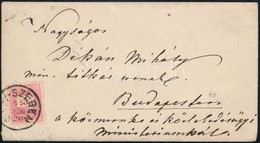 Nagyságos
Dékán Mihály
min. titkár urnak
Budapesten
a közmunka és közlekedésügyi
ministeriumban
SZEBEN